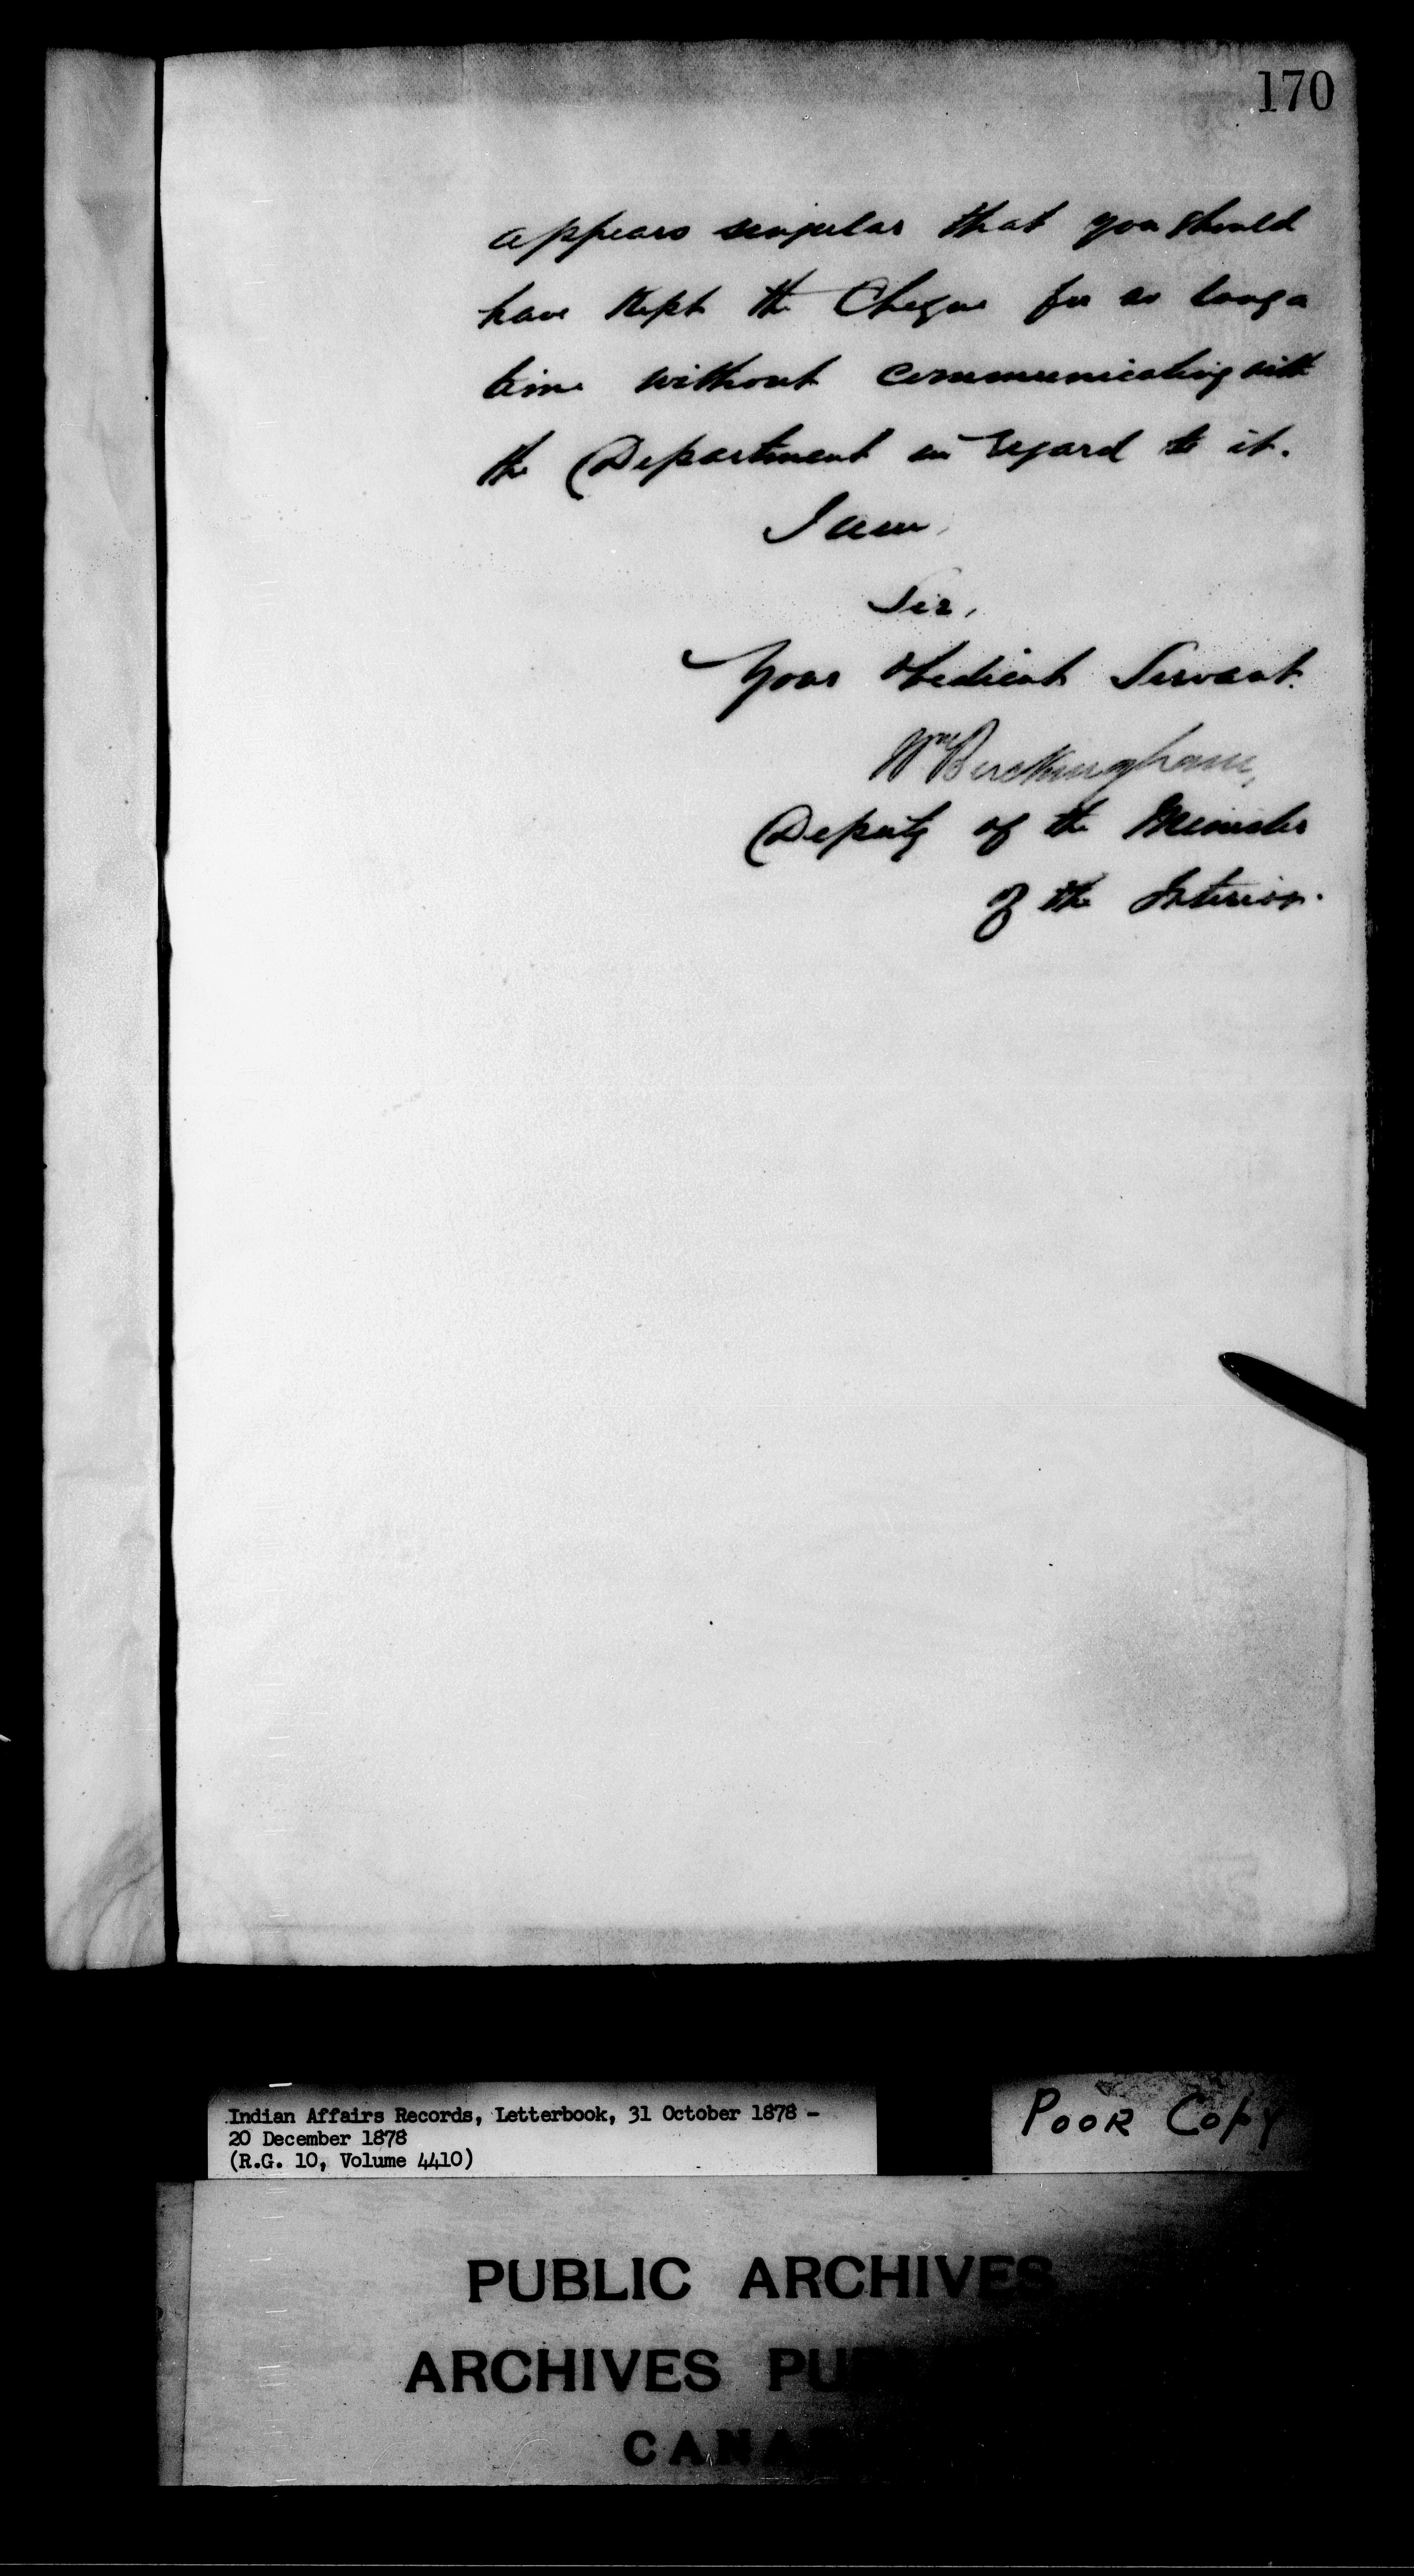 170
appears singular that you should
have kept the Cheque for so long a
time without communicating with
the Department in regard to it.
I am,
Sir,
Your obedient Servant.
Wm Buckingham,
Deputy of the Minister
of the Interior.
Indian Affairs Records, Letterbook, 31 October 1878 -
20 December 1878
(R.G. 10, Volume 4410)
POOR COPY
PUBLIC ARCHIVES
ARCHIVES PU
CANA